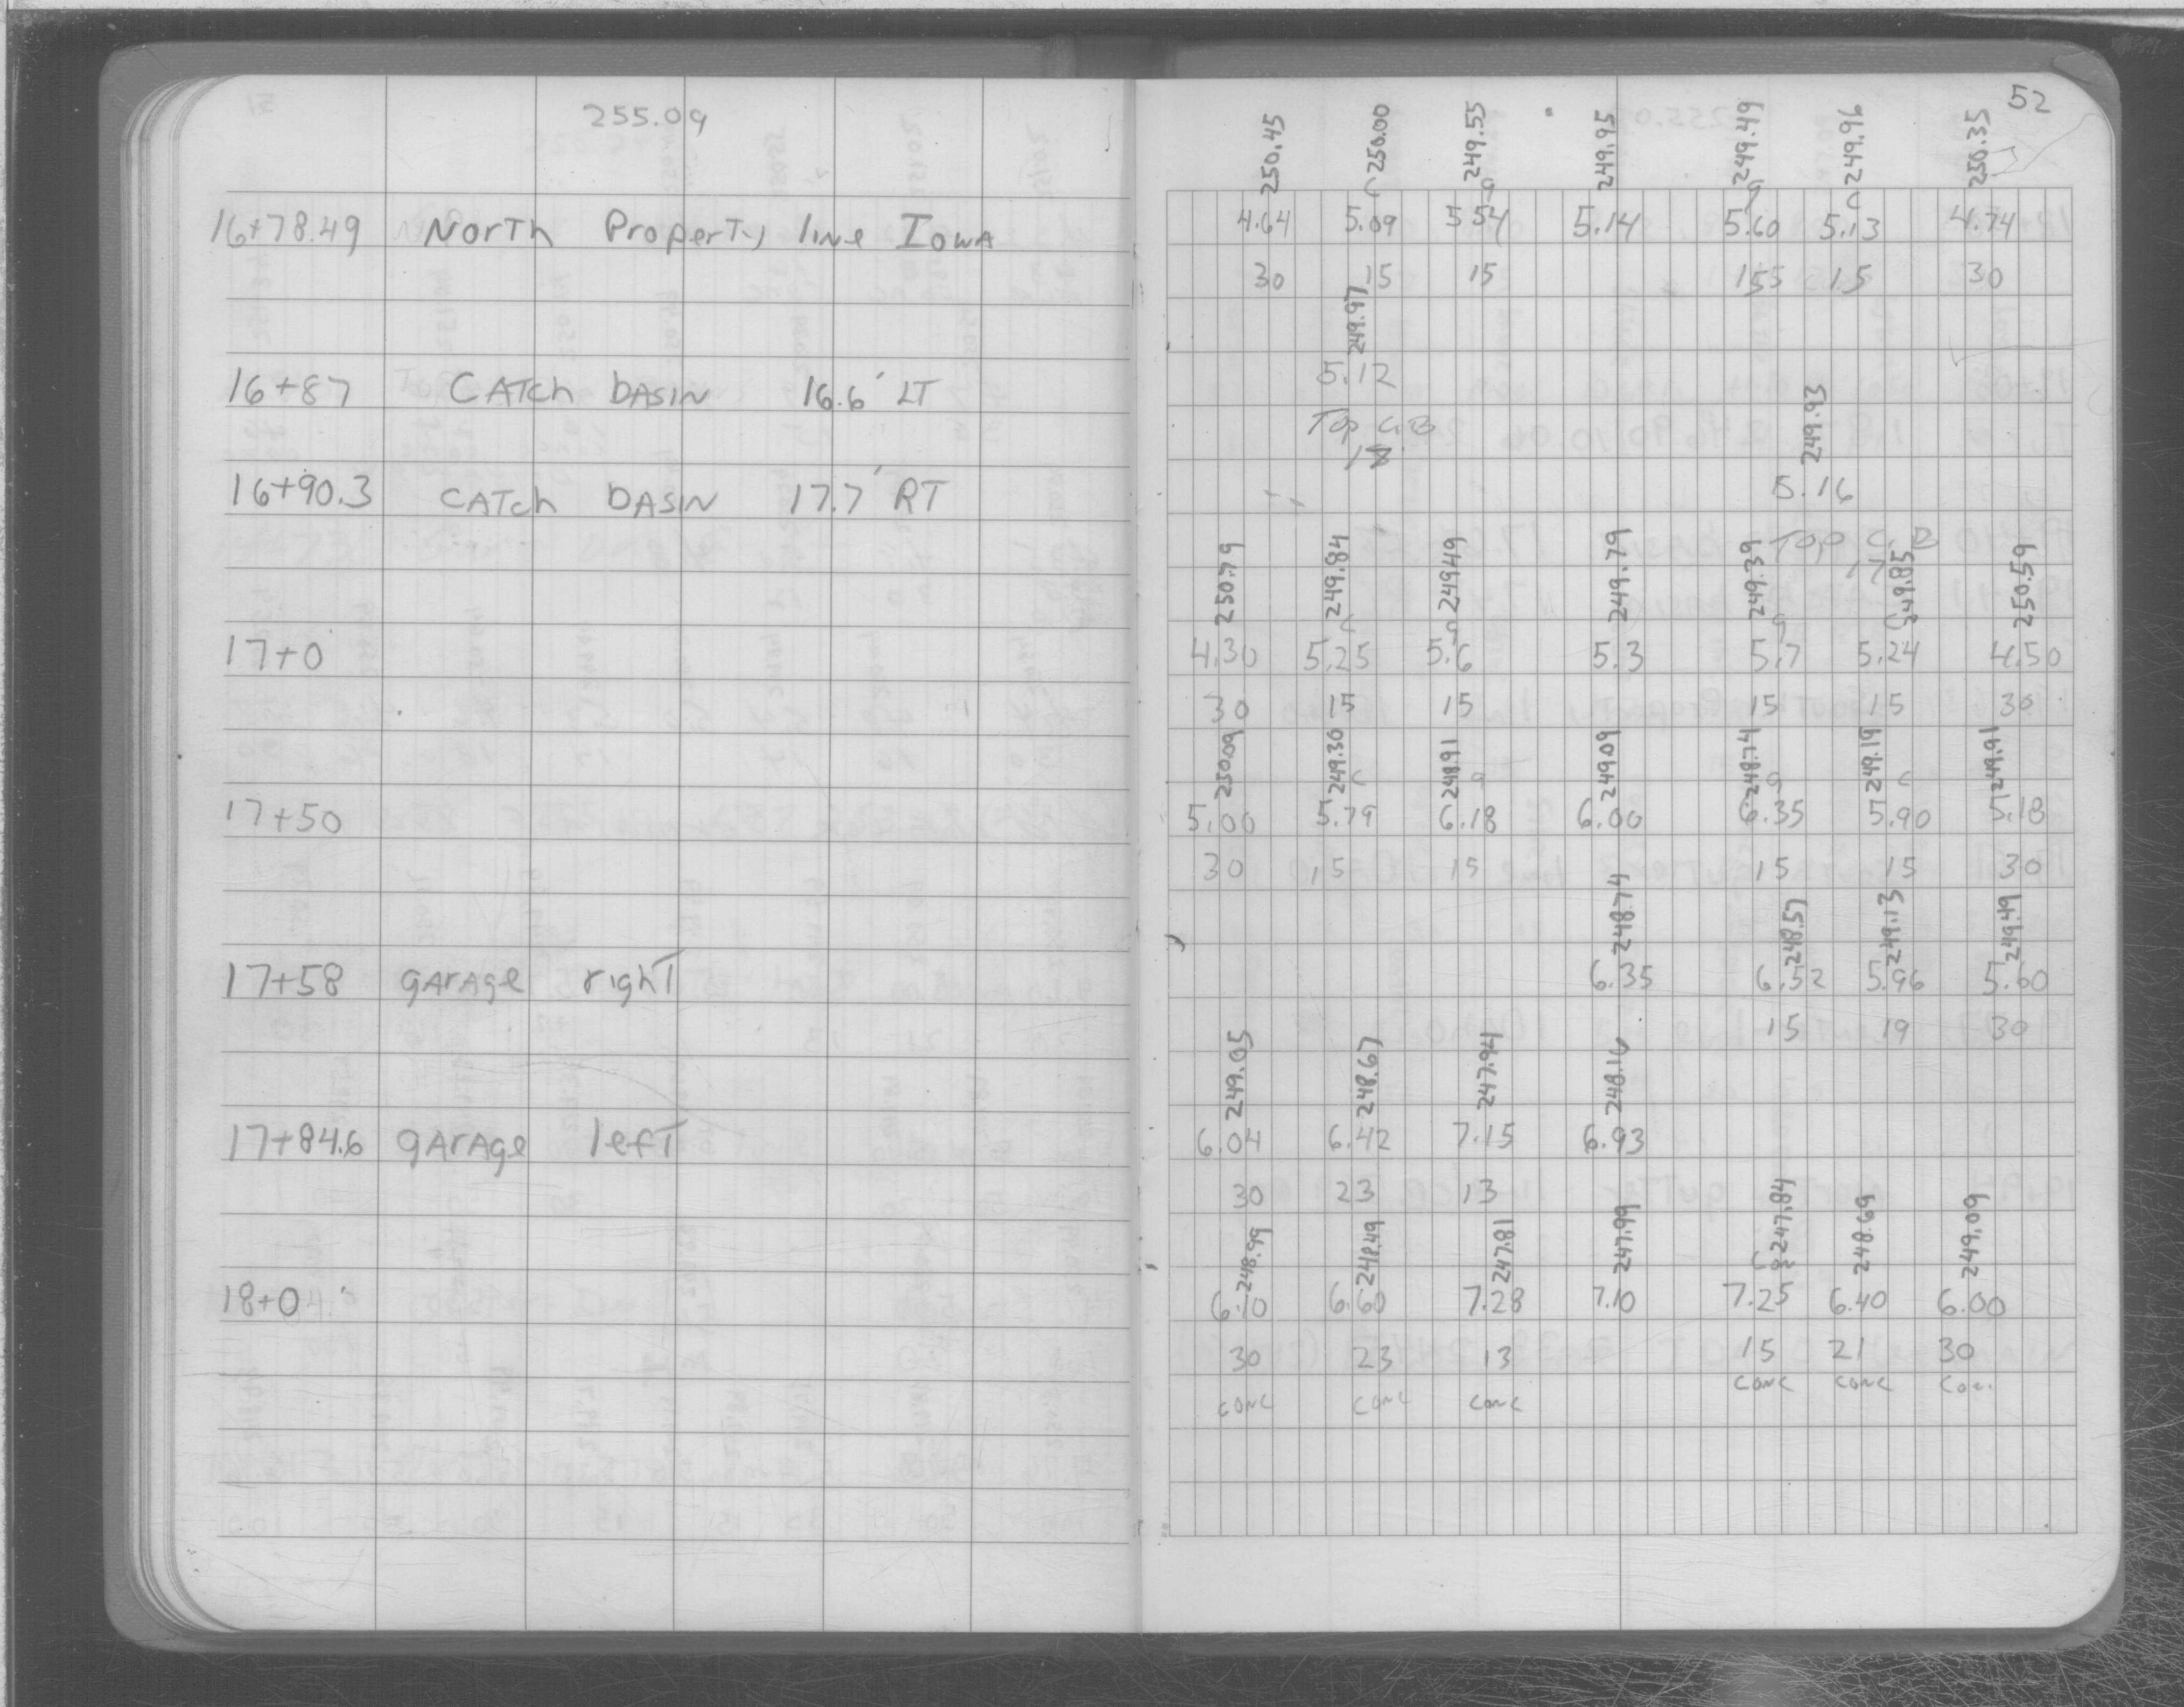 255.09
52
250.45 250.00 249.55 249.95 249.49 249.96 250.35
c g g c
16+78.49 North Property line Iowa 4.64 5.09 5.54 5.14 5.60 5.13 4.74
30 15 15 155 15 30
249.97
16+87 CATCh bASIN 16.6' LT 5.12
Top C.B
249.93
16+90.3 CATCh bASIN 17.7' RT 5.16
Top C.B
17
250.79 249.84 249.49 249.79 249.39 249.85 250.59
c g g c
17+0 4.30 5.25 5.6 5.3 5.7 5.24 4.50
30 15 15 15 15 30
250.09 249.30 248.91 249.09 248.74 249.19 249.91
c g g c
17+50 5.00 5.79 6.18 6.00 6.35 5.90 5.18
30 15 15 15 15 30
248.74 248.57 249.13 249.49
17+58 gArAge righT 6.35 6.52 5.96 5.60
15 19 30
249.05 248.67 247.94 248.16
17+84.6 gArAge lefT 6.04 6.42 7.15 6.93
30 23 13
248.99 248.49 247.81 247.99 247.84 248.69 249.09
18+0 6.10 6.60 7.28 7.10 7.25 6.40 6.00
30 23 13 15 21 30
conc conc conc conc conc conc